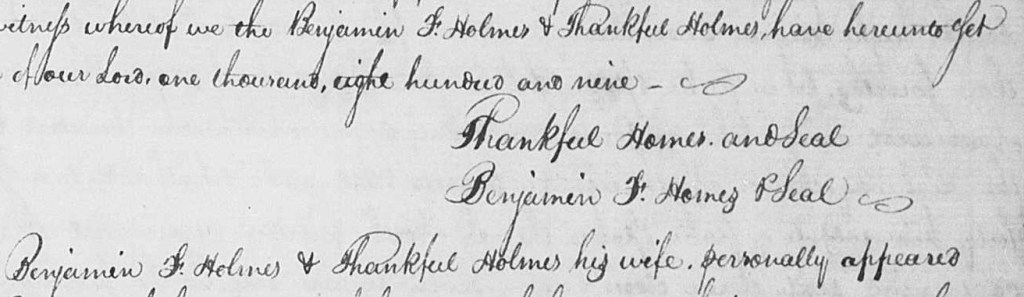 witness whereof we the Benjamin F. Holmes & Thankful Holmes, have hereunto Set
of our Lord, one thousand, eight hundred and nine –
Thankful Homes. and Seal
Benjamin F. Homes & Seal
Benjamin F. Holmes & Thankful Holmes his wife. personally appeared